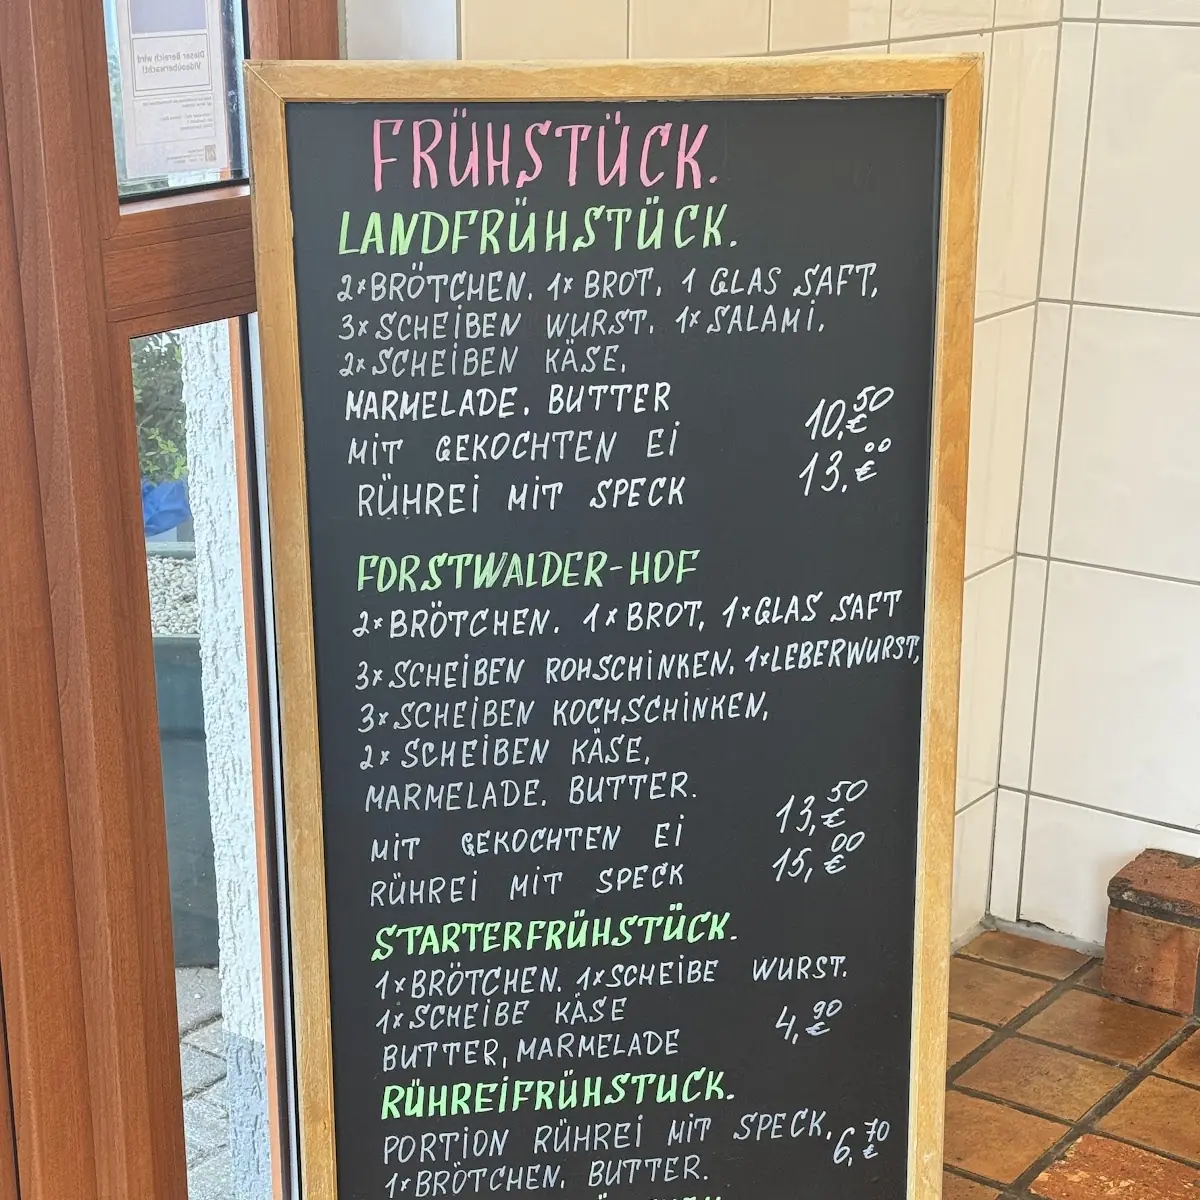 Dieser Bereich wird
Videoüberwacht!
FRÜHSTÜCK.
LANDFRÜHSTÜCK.
2x BRÖTCHEN. 1x BROT, 1 GLAS SAFT,
3x SCHEIBEN WURST. 1x SALAMI.
2x SCHEIBEN KÄSE,
MARMELADE. BUTTER
MIT GEKOCHTEN EI 10,50 €
RÜHREI MIT SPECK 13,00 €
FORSTWALDER-HOF
2x BRÖTCHEN. 1x BROT, 1x GLAS SAFT
3x SCHEIBEN ROHSCHINKEN. 1x LEBERWURST,
3x SCHEIBEN KOCHSCHINKEN,
2x SCHEIBEN KÄSE,
MARMELADE. BUTTER.
MIT GEKOCHTEN EI 13,50 €
RÜHREI MIT SPECK 15,00 €
STARTERFRÜHSTÜCK.
1x BRÖTCHEN. 1x SCHEIBE WURST.
1x SCHEIBE KÄSE
BUTTER, MARMELADE 4,90 €
RÜHREIFRÜHSTUCK.
PORTION RÜHREI MIT SPECK, 6,70 €
1x BRÖTCHEN. BUTTER.